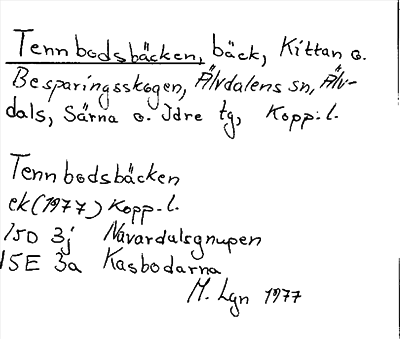 Tennbodsbäcken, bäck, Kittan o.
Besparingsskogen, Älvdalens sn, Älv-
dals, Särna o. Idre tg, Kopp. l.
Tennbodsbäcken
ek (1977) Kopp. l.
15D 3j Navardalsgnupen
15E 3a Kasbodarna
M. Lgn 1977